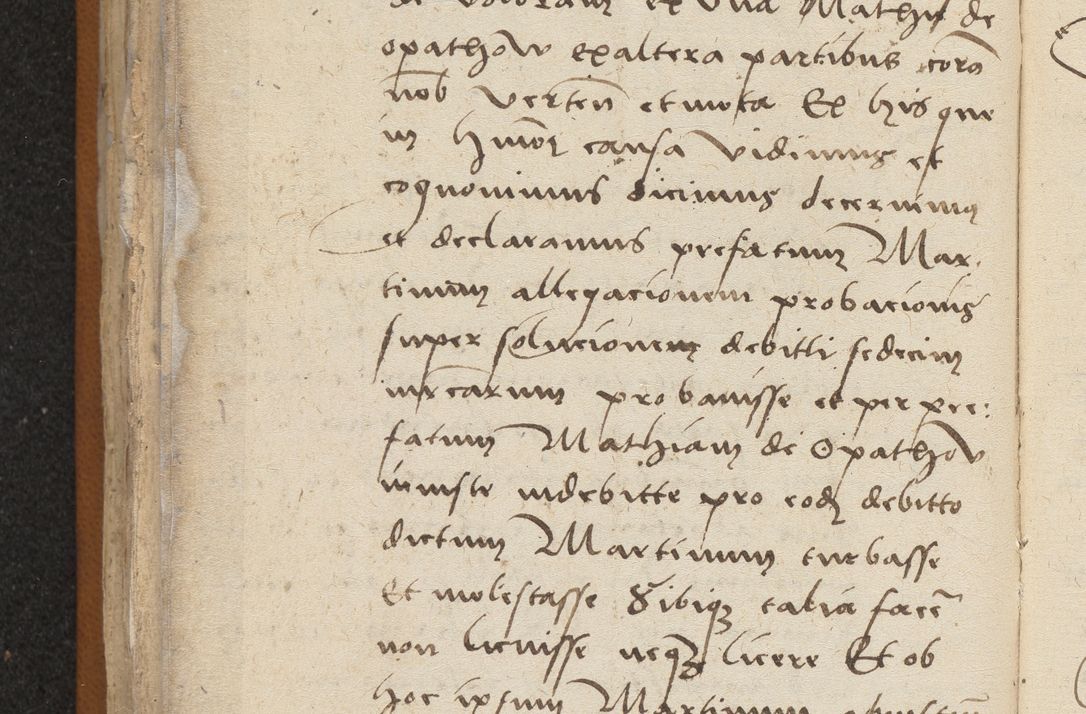 ex una Mathia de
opathow ex altera partibus corā
nob vertēn et mota Ex his que
in hmōi causa vidimus et
cognovimus dicimus decernimus
et declaramus prefatum Mar
tinum allegacionem probacionis
super solucionem debitti sedecim
mrcarum probavisse et per pre:
fatum Mathiam de Opathow
iniuste indebitte pro eodem debitto
dictum Martinum turbasse
Et molestasse Sibique talia facē
non licuisse neque licere Et ob
hoc ipsum Martinum